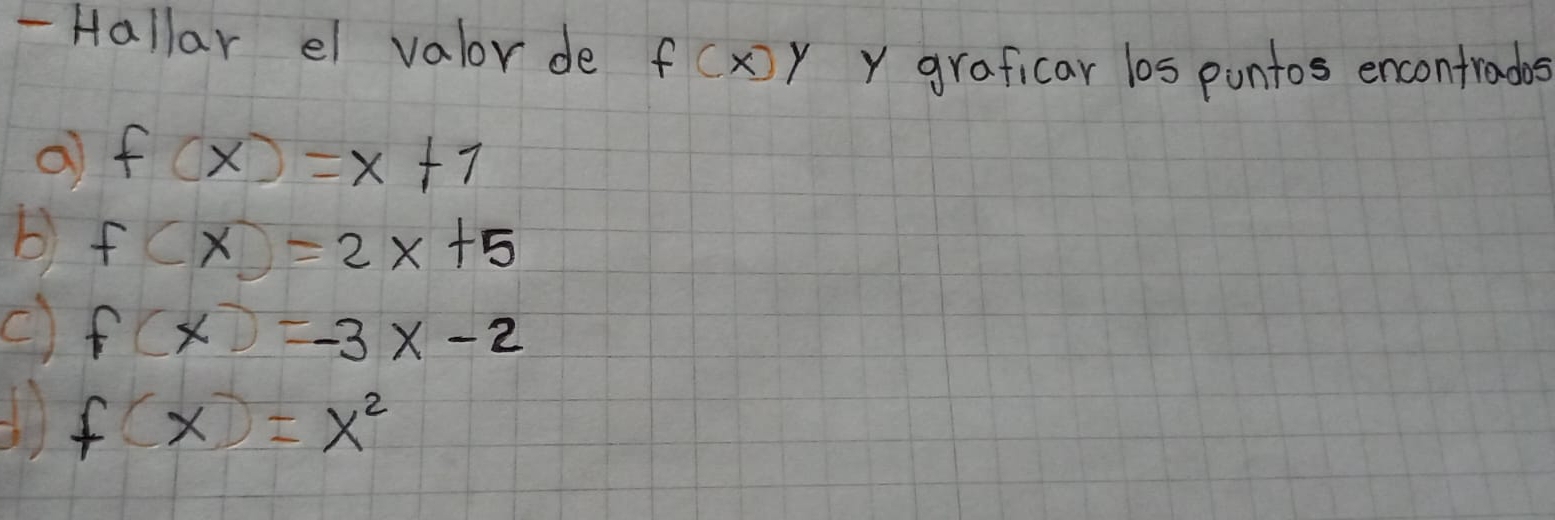 - Hallar el valor de f(x) y y graficar los puntos encontrados
a) f(x) = x + 1
b) f(x) = 2x + 5
c) f(x) = -3x - 2
d) f(x) = x²